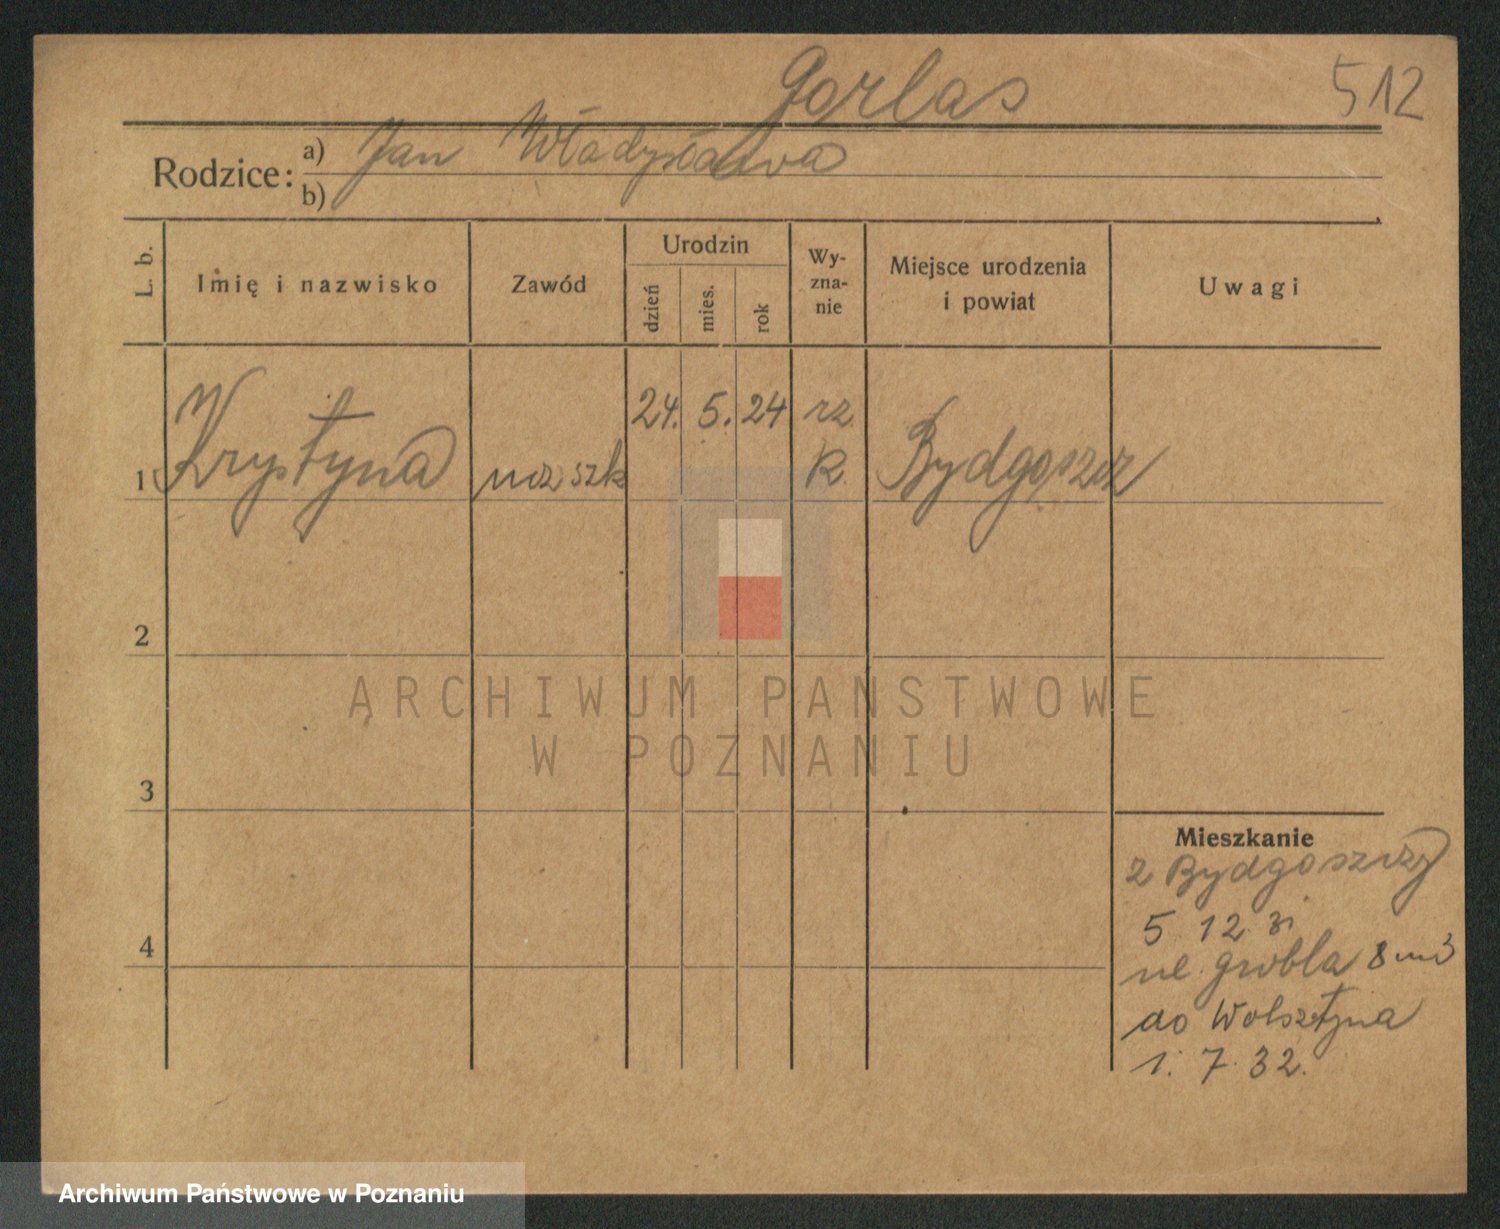 Gorlas
512
Rodzice:
a) Jan Władysława
b)
L. b.
Imię i nazwisko
Zawód
Urodzin
dzień
mies.
rok
Wy-
zna-
nie
Miejsce urodzenia
i powiat
Uwagi
1 Krystyna ucz szk 24. 5. 24 rz
k. Bydgoszcz
2
3
4
ARCHIWUM PAŃSTWOWE
W POZNANIU
Mieszkanie
z Bydgoszczy
5 12 31
ul. grobla 8 m 3
do Wolsztyna
1. 7. 32.
Archiwum Państwowe w Poznaniu